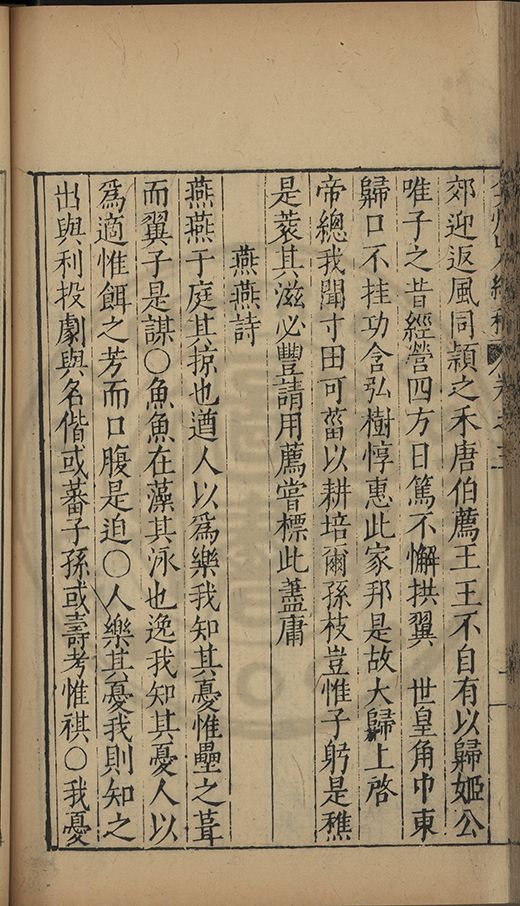 郊迎返風同穎之禾唐伯薦王王不自有以歸姬公
唯子之昔經營四方日篤不懈拱翼　世皇角巾東
歸口不挂功含弘樹惇惠此家邦是故大歸上啓
帝總我聞寸田可菑以耕培爾孫枝豈惟子躬是穮
是蓘其滋必豐請用薦嘗標此藎庸
燕燕詩
燕燕于庭其掠也遒人以爲樂我知其憂惟壘之葺
而翼子是謀〇魚魚在藻其泳也逸我知其憂人以
爲適惟餌之芳而口腹是迫〇人樂其憂我則知之
出與利投劇與名偕或蕃子孫或壽考惟祺〇我憂